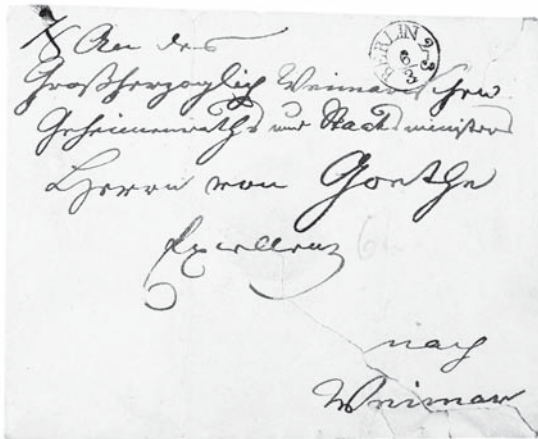 An des
BERLIN 2-3
6/3
Großherzoglich Weimarschen
Geheimenraths und Staatsministers
Herrn von Goethe
Excellenz
nach
Weimar